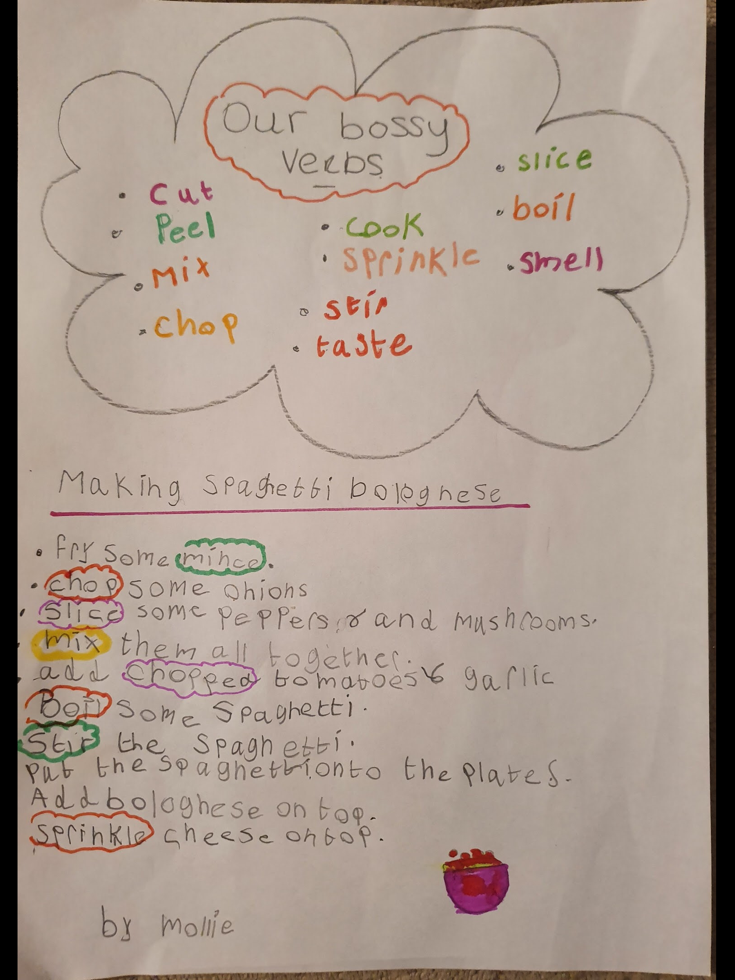 Our bossy
verbs
• cut
• Peel
• mix
• chop
• cook
• sprinkle
• stir
• taste
• slice
• boil
• smell
Making spaghetti bolognese
• fry some mince.
• chop some onions
• Slice some peppers, & and mushrooms.
• mix them all together.
• add chopped tomatoes & garlic
Boil some spaghetti.
Stir the spaghetti.
Put the spaghetti onto the plates.
Add bologhese on top.
sprinkle cheese on top.
by mollie